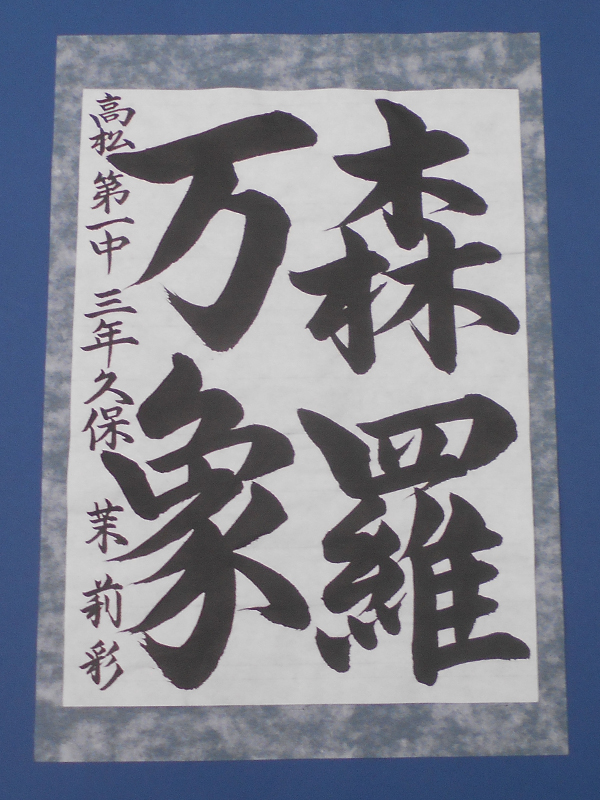 森羅
万象
高松第一中三年久保茉莉彩